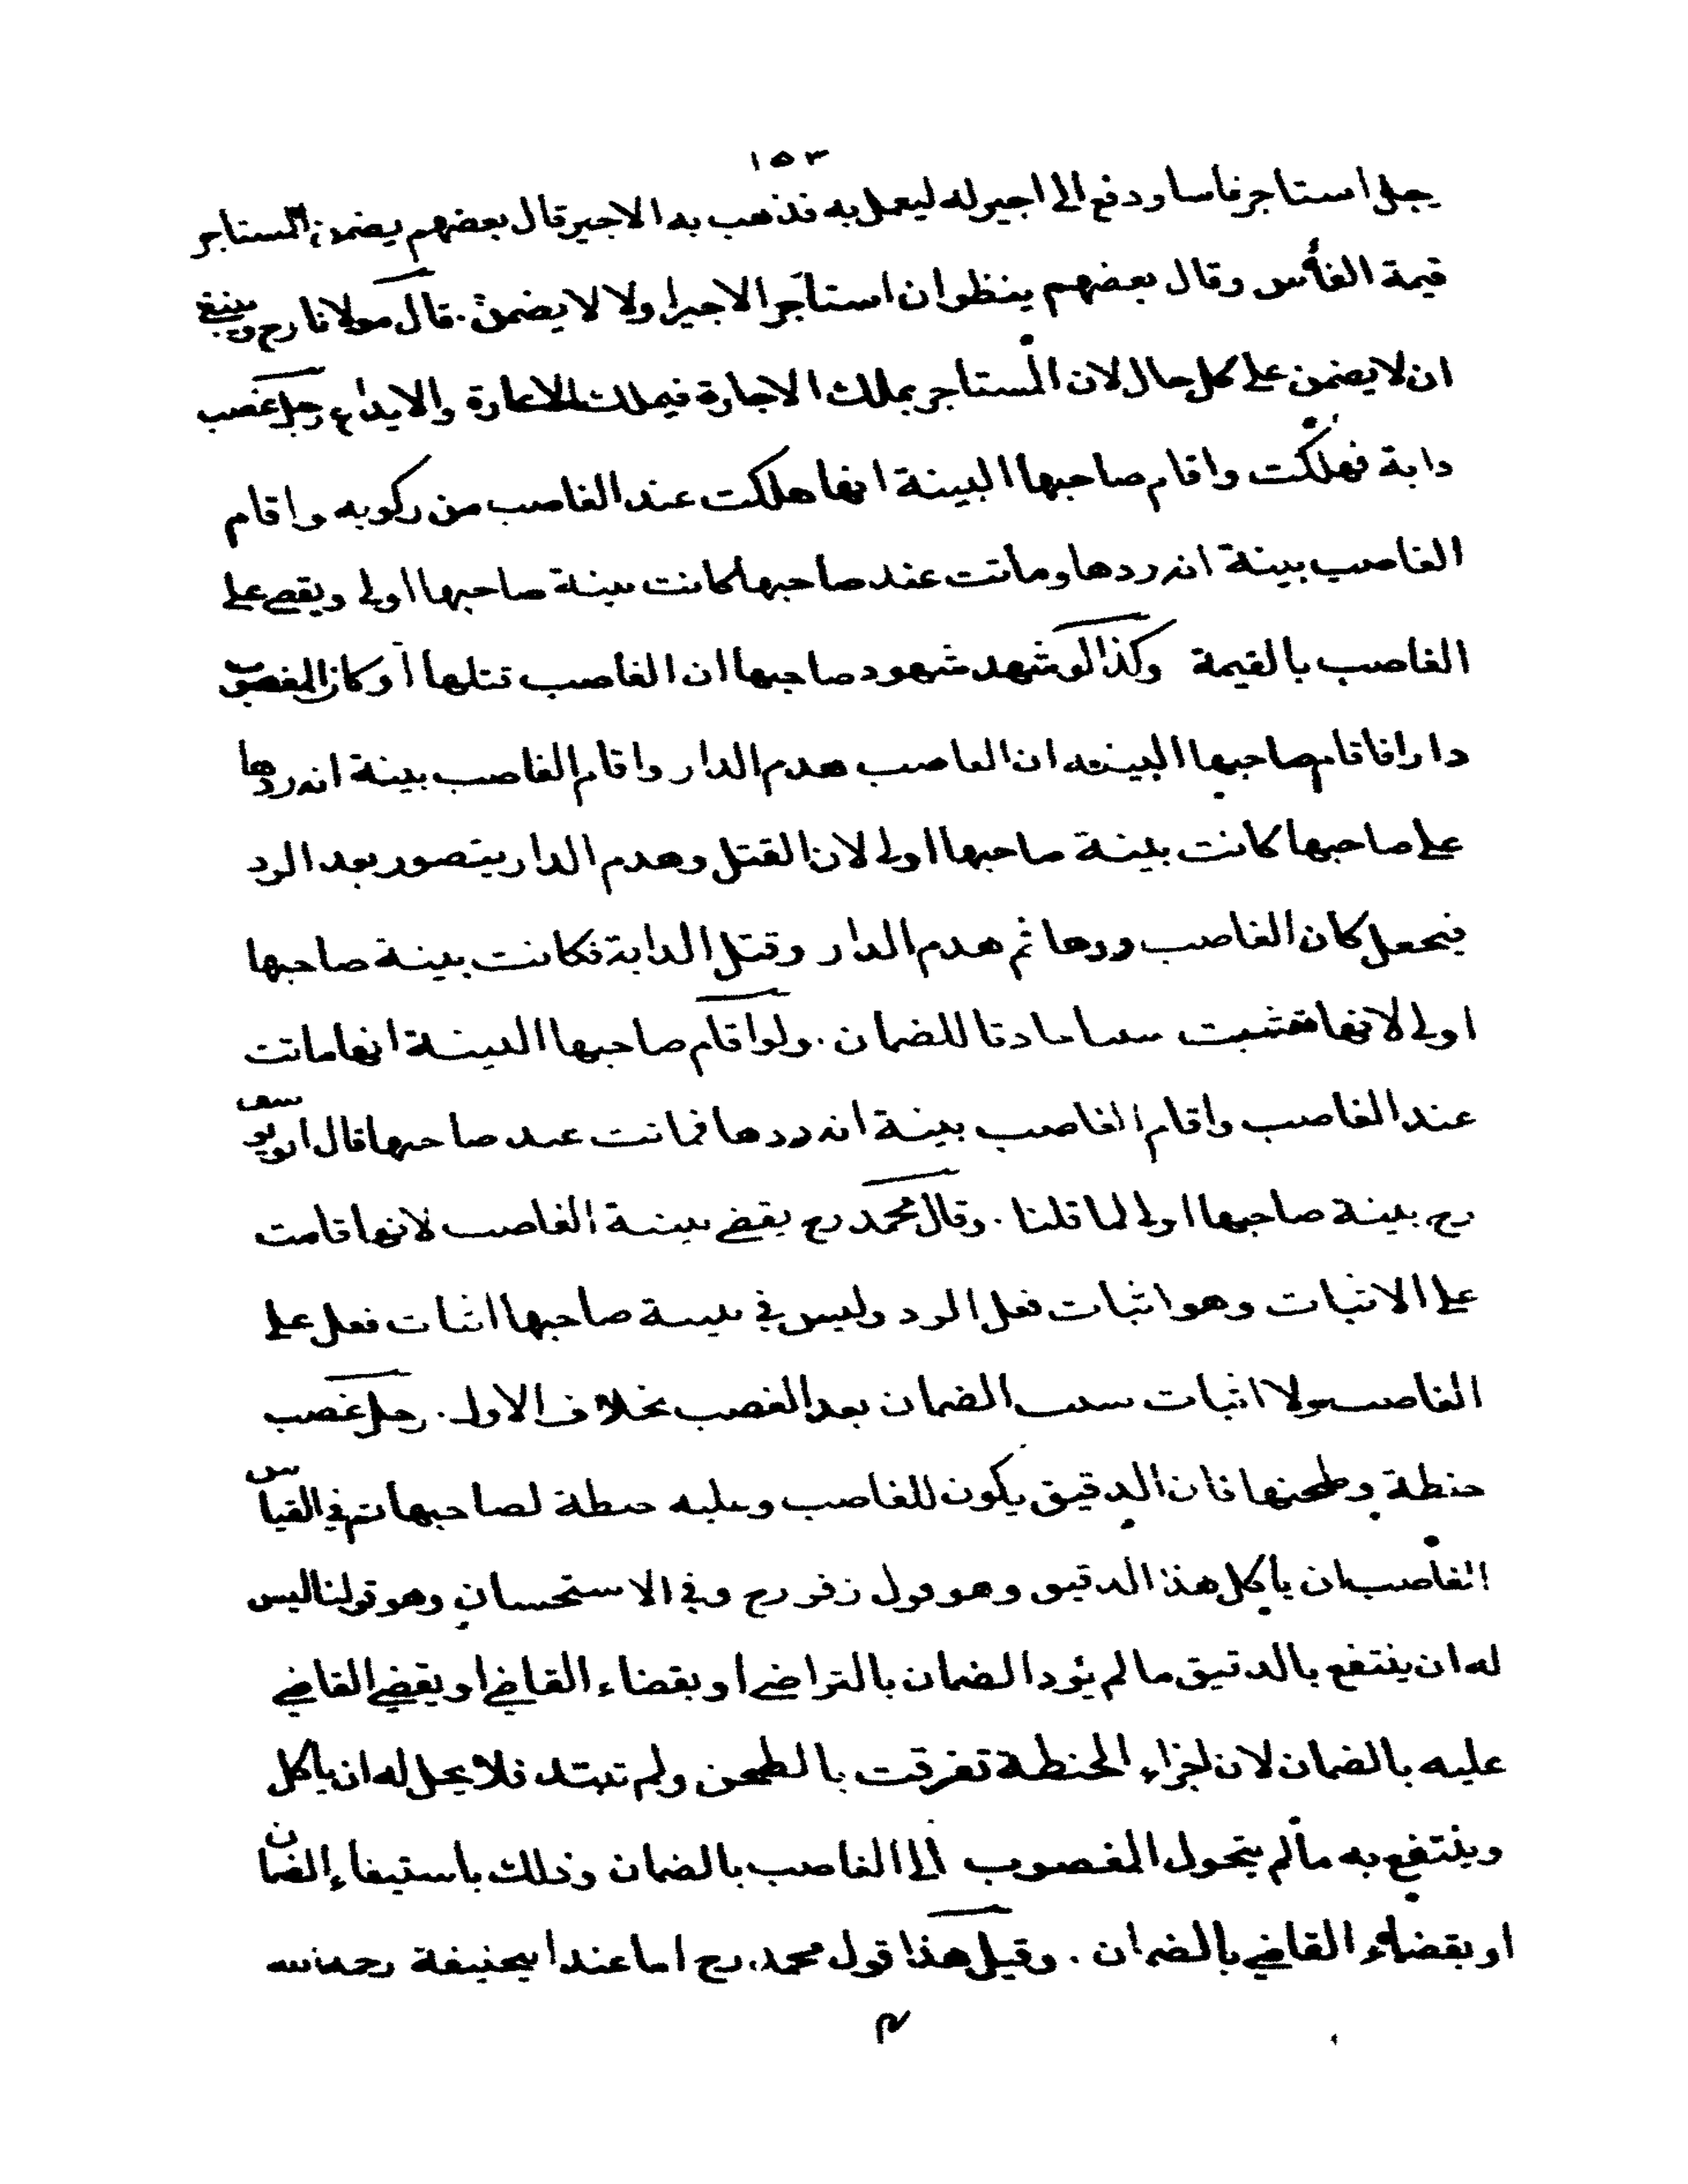 ١٥٣
رجل استاجر فاسا ودفع الى اجير له ليعمل به فذهب به الاجير قال بعضهم يضمن المستاجر
قيمة الفأس وقال بعضهم ينظر ان استأجر الاجير اولا لا يضمن . قال مولانا رح وينبغي
ان لا يضمن على كل حال لان المستاجر يملك الاجارة فيملك الاعارة والايداع رجل غصب
دابة فهلكت واقام صاحبها البينة انها هلكت عند الغاصب من ركوبه واقام
الغاصب بينة انه ردها وماتت عند صاحبها كانت بينة صاحبها اولى ويقضى على
الغاصب بالقيمة وكذا لو شهد شهود صاحبها ان الغاصب قتلها أو كان المغصوب
دارا فاقام صاحبها البينة ان الغاصب هدم الدار واقام الغاصب بينة انه ردها
على صاحبها كانت بينة صاحبها اولى لان القتل وهدم الدار يتصور بعد الرد
فيجعل كان الغاصب ردها ثم هدم الدار وقتل الدابة فكانت بينة صاحبها
اولى لانها تثبت سببا حادثا للضمان . ولو اقام صاحبها البينة انها ماتت
عند الغاصب واقام الغاصب بينة انه ردها فماتت عند صاحبها قال ابو يوسف
رح بينة صاحبها اولى لما قلنا . وقال محمد رح يقضى ببينة الغاصب لانها قامت
على الاثبات وهو اثبات فعل الرد وليس في بينة صاحبها اثبات فعل على
الغاصب ولا اثبات سبب الضمان بعد الغصب بخلاف الاول . رجل غصب
حنطة وطحنها فان الدقيق يكون للغاصب وعليه حنطة لصاحبها ثم في القياس
الغاصب ان ياكل هذا الدقيق وهو قول زفر رح وفي الاستحسان وهو قولنا ليس
له ان ينتفع بالدقيق ما لم يؤد الضمان بالتراضي او بقضاء القاضي او يقضي القاضي
عليه بالضمان لان اجزاء الحنطة تفرقت بالطحن ولم تتبدد فلا يحل له ان ياكل
وينتفع به ما لم يتحول المغصوب الى الغاصب بالضمان وذلك باستيفاء الضمان
او بقضاء القاضي بالضمان . وقيل هذا قول محمد رح اما عند ابيحنيفة رحمه الله